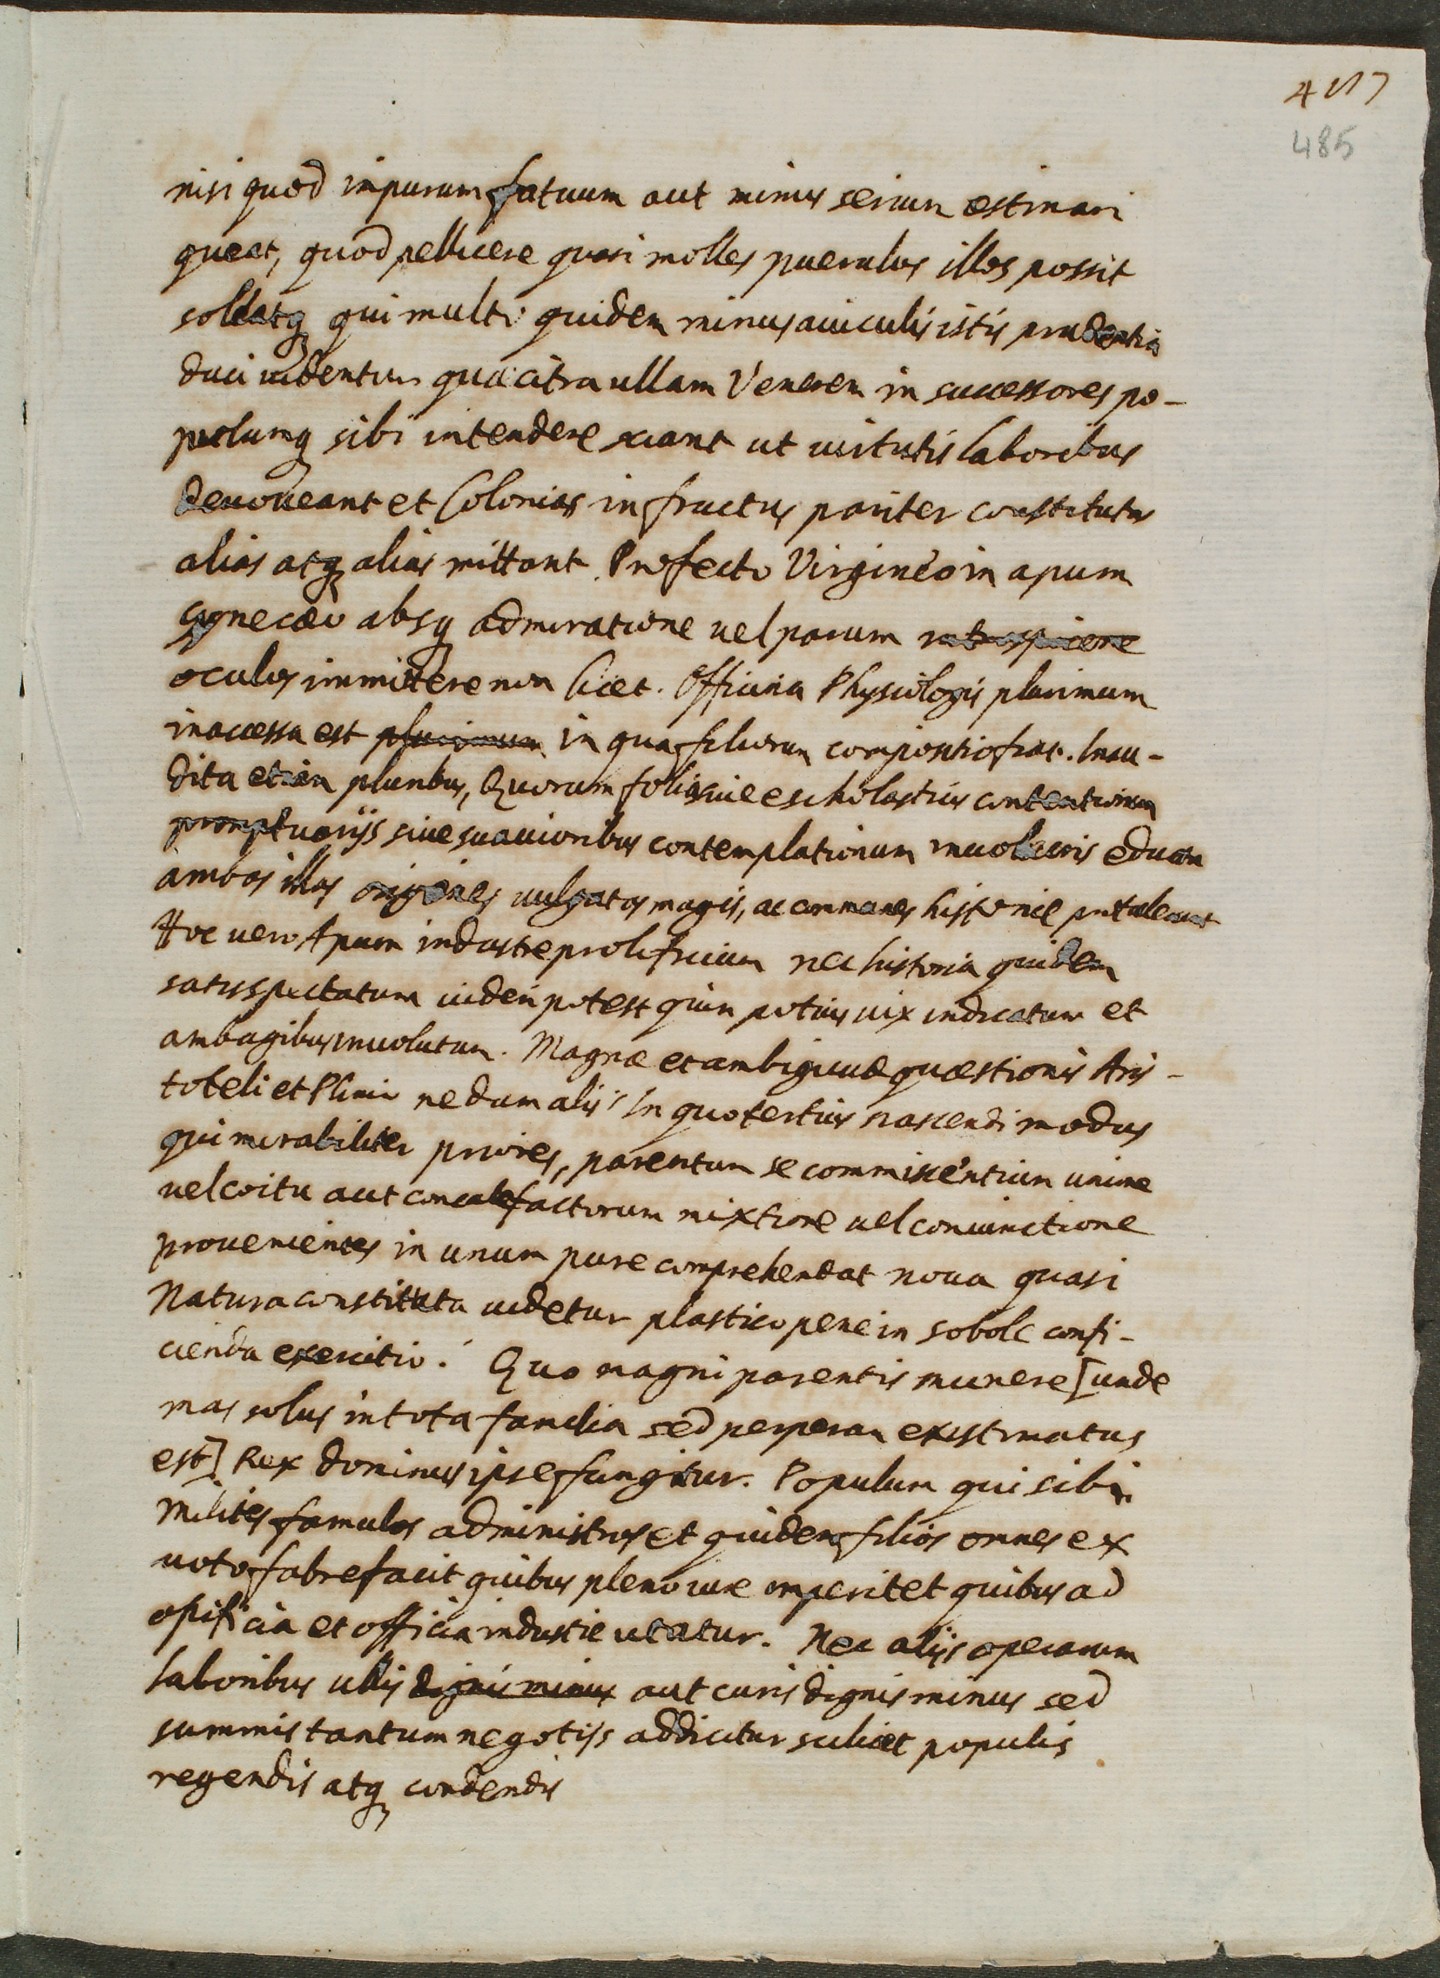 417
485
nisi quod impurum fatuum aut minus serium estimari
queat, quod pellicere quasi molles puerulos illos possit
soleatq qui multi quidem minus auiculis istis prudentia
duci uidentur quae citra ullam Venerem in successores po-
pulumq sibi intendere sciant ut uirtutis laboribus
deuoueant et Colonias in fructus pariter constitutas
alias atq alias mittant. Profecto Virgineo in apum
gynecæo absq admiratione uel parum introspicere
oculos immittere non licet. Officina Physiologis plurimum
inaccessa est plurimum in qua filiorum compositio fiat. Inau-
dita etiam pluribus, Quorum folia siue e scholasticis contentionum
promptuarijs siue suauioribus contemplationum inuolucris educta
ambos illos origines uulgatos magis, ac communes historie
Hoc uero Apum industre prolificium nec historia quidem
satis spectatum uideri potest quin potius uix indicatum et
ambagibus inuolutum. Magnæ et ambiguæ quæstionis Aris-
toteli et Plinio nedum alijs In quo tertius nascendi modus
qui mirabiliter priores, parentum se commiscentium unione
uel coitu aut concalefactorum mixtione uel coniunctione
prouenientes in unum pure comprehendat noua quasi
Natura constituta uidetur plastico pene in sobole confi-
cienda exercitio. Quo magni parentis munere [unde
mas solus in tota familia sed perperam existimatus
est] Rex dominus ipse fungitur. Populum qui sibi
Milites famulos administros et quidem filios omnes ex
uoto fabrefacit quibus pleno iure imperitet quibus ad
opificia et officia industrie utatur. Nec alijs operarum
laboribus ullis dignis minus aut curis dignis minus sed
summis tantum negotijs addicitur scilicet populis
regendis atq condendis